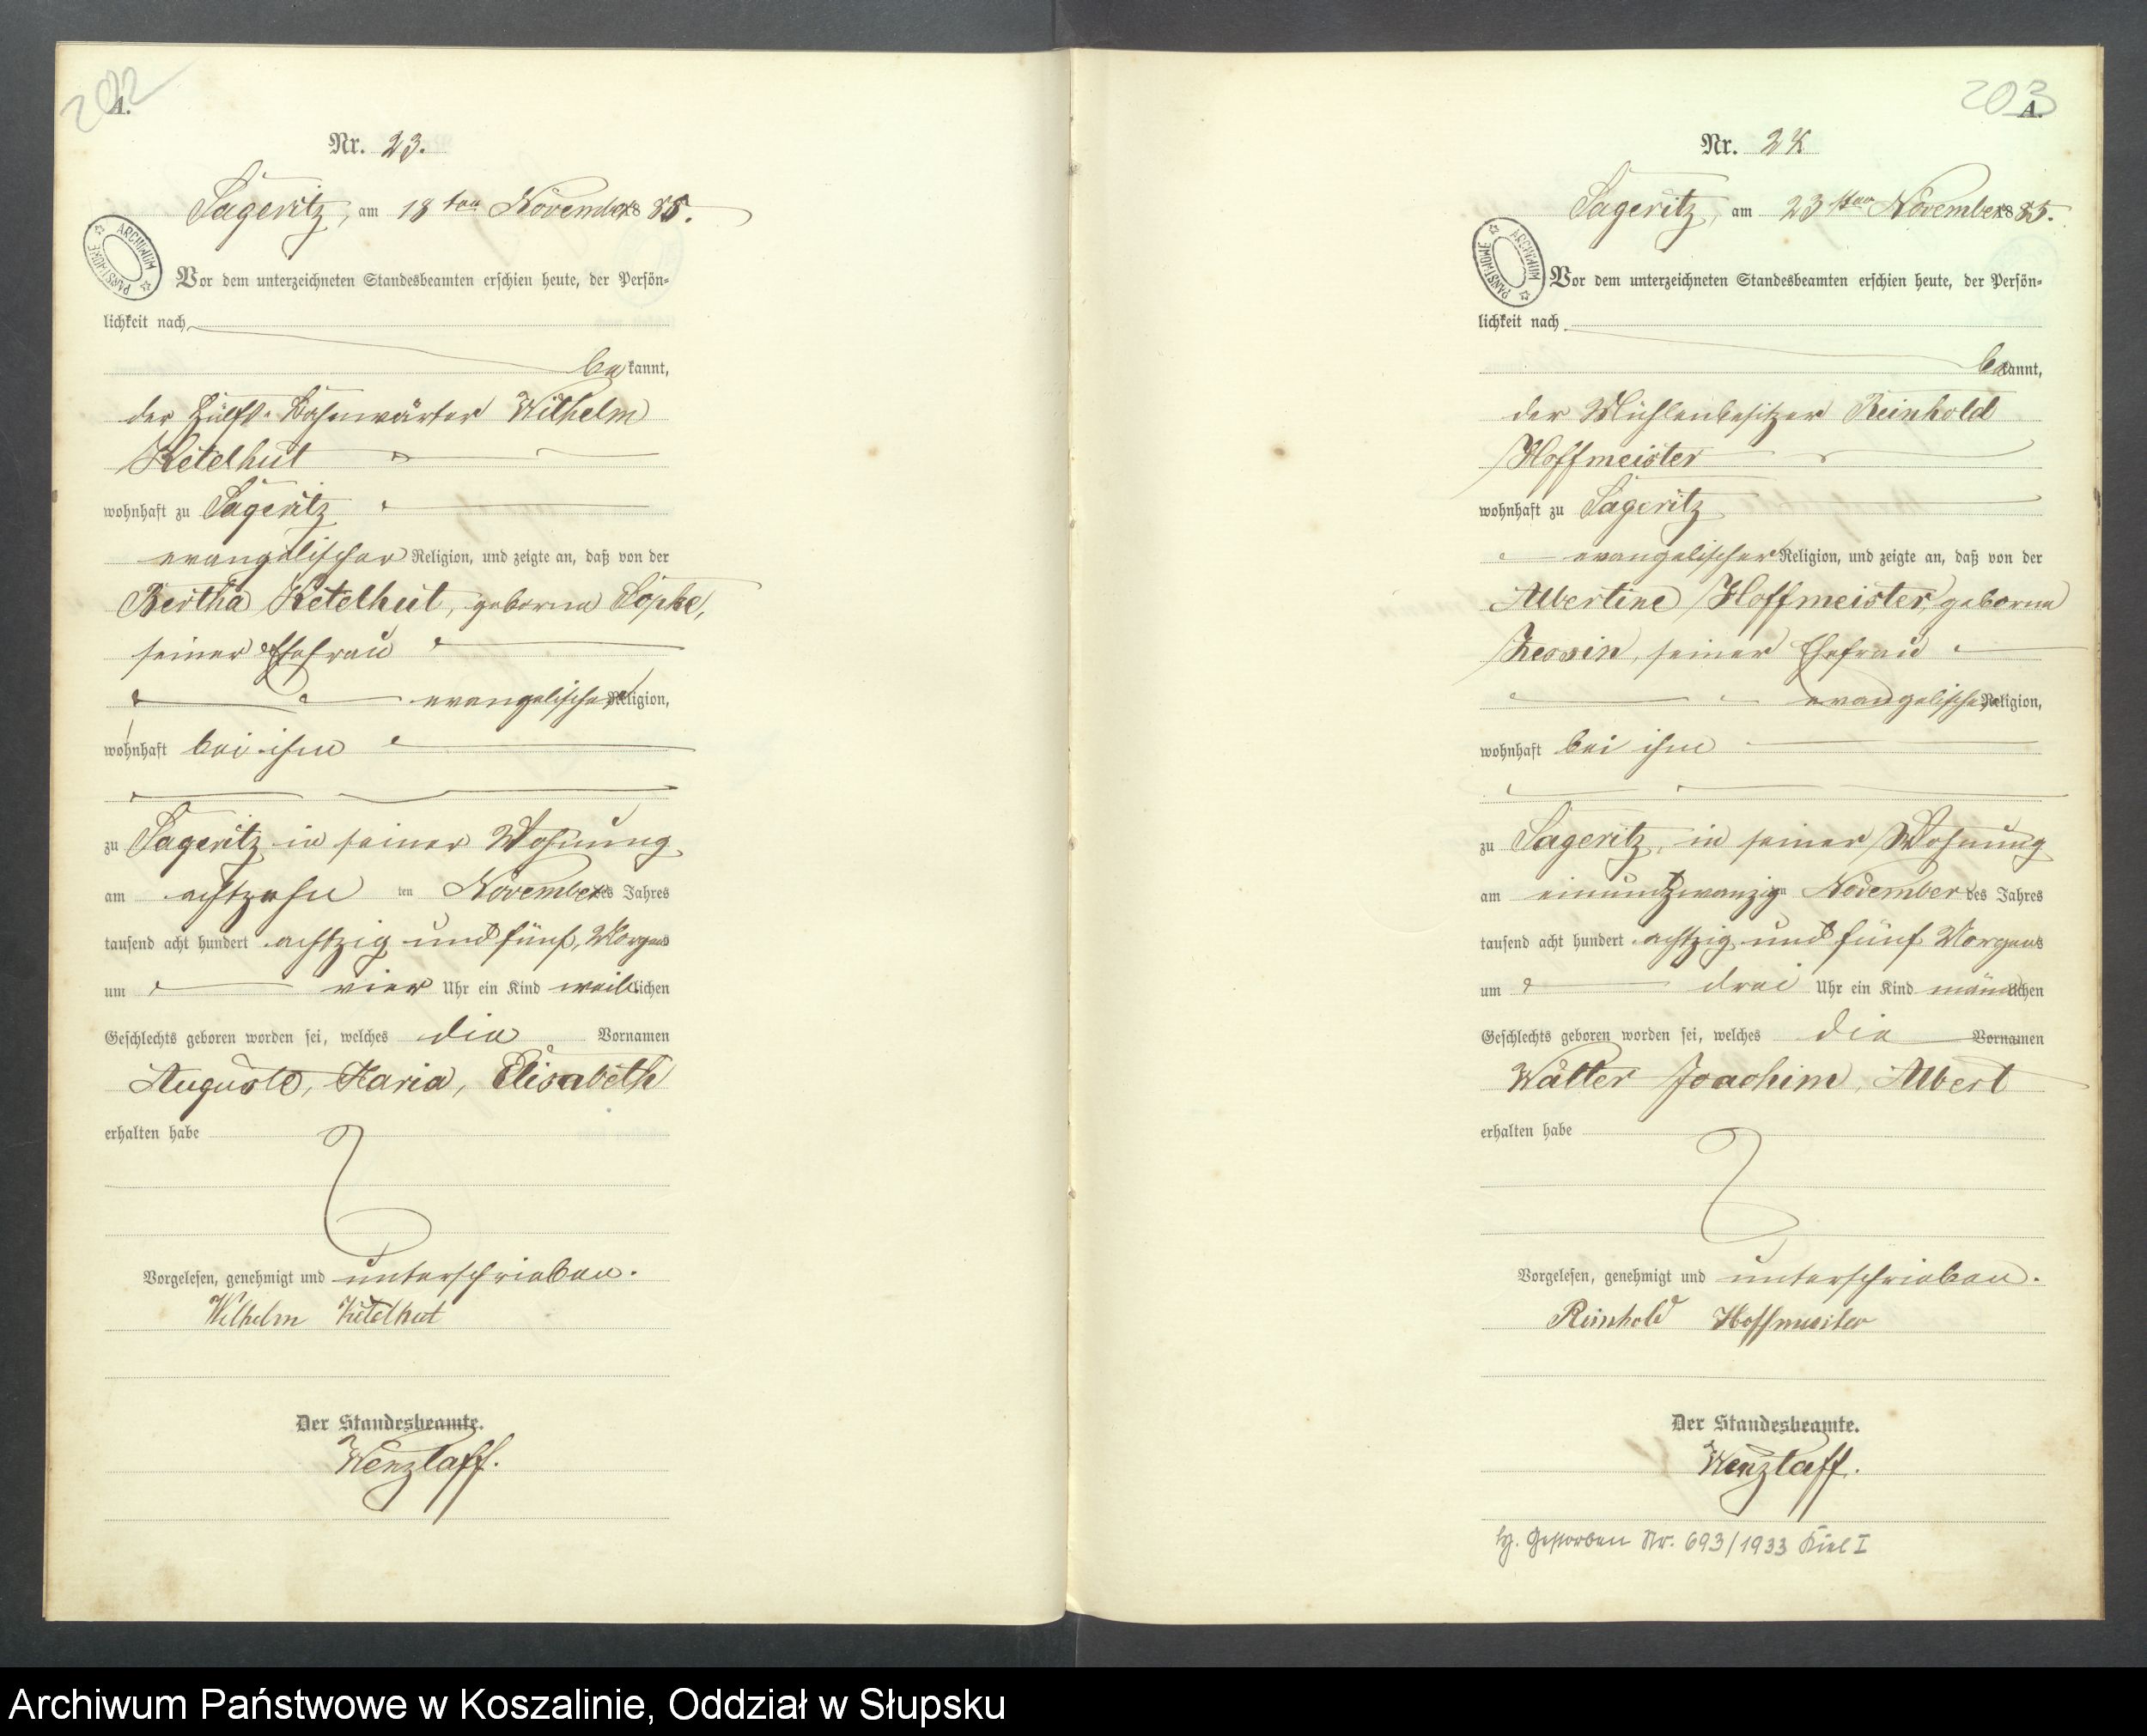 202
A.
Nr. 23.
Sageritz, am 18ten November 1885.
ARCHIWUM PAŃSTWOWE
Vor dem unterzeichneten Standesbeamten erschien heute, der Persön-
lichkeit nach
bekannt,
der Hülfs-Bahnwärter Wilhelm
Ketelhut
wohnhaft zu Sageritz
evangelischer Religion, und zeigte an, daß von der
Bertha Ketelhut, geborne Topke,
seiner Ehefrau
evangelischer Religion,
wohnhaft bei ihm
zu Sageritz in seiner Wohnung
am achtzehn ten November des Jahres
tausend acht hundert achtzig und fünf, Morgens
um vier Uhr ein Kind weiblichen
Geschlechts geboren worden sei, welches die Vornamen
Auguste, Maria, Elisabeth
erhalten habe
Vorgelesen, genehmigt und unterschrieben.
Wilhelm Ketelhut
Der Standesbeamte.
Wenzlaff.
203
A.
Nr. 24
Sageritz, am 23sten November 1885.
ARCHIWUM PAŃSTWOWE
Vor dem unterzeichneten Standesbeamten erschien heute, der Persön-
lichkeit nach
bekannt,
der Mühlenbesitzer Reinhold
Hoffmeister
wohnhaft zu Sageritz
evangelischer Religion, und zeigte an, daß von der
Albertine Hoffmeister, geborne
Zessin, seiner Ehefrau
evangelischer Religion,
wohnhaft bei ihm
zu Sageritz, in seiner Wohnung
am einundzwanzigten November des Jahres
tausend acht hundert achtzig und fünf Morgens
um drei Uhr ein Kind männlichen
Geschlechts geboren worden sei, welches die Vornamen
Walter Joachim, Albert
erhalten habe
Vorgelesen, genehmigt und unterschrieben.
Reinhold Hoffmeister
Der Standesbeamte.
Wenzlaff.
Gestorben Nr. 693/1933 Kiel I
Archiwum Państwowe w Koszalinie, Oddział w Słupsku